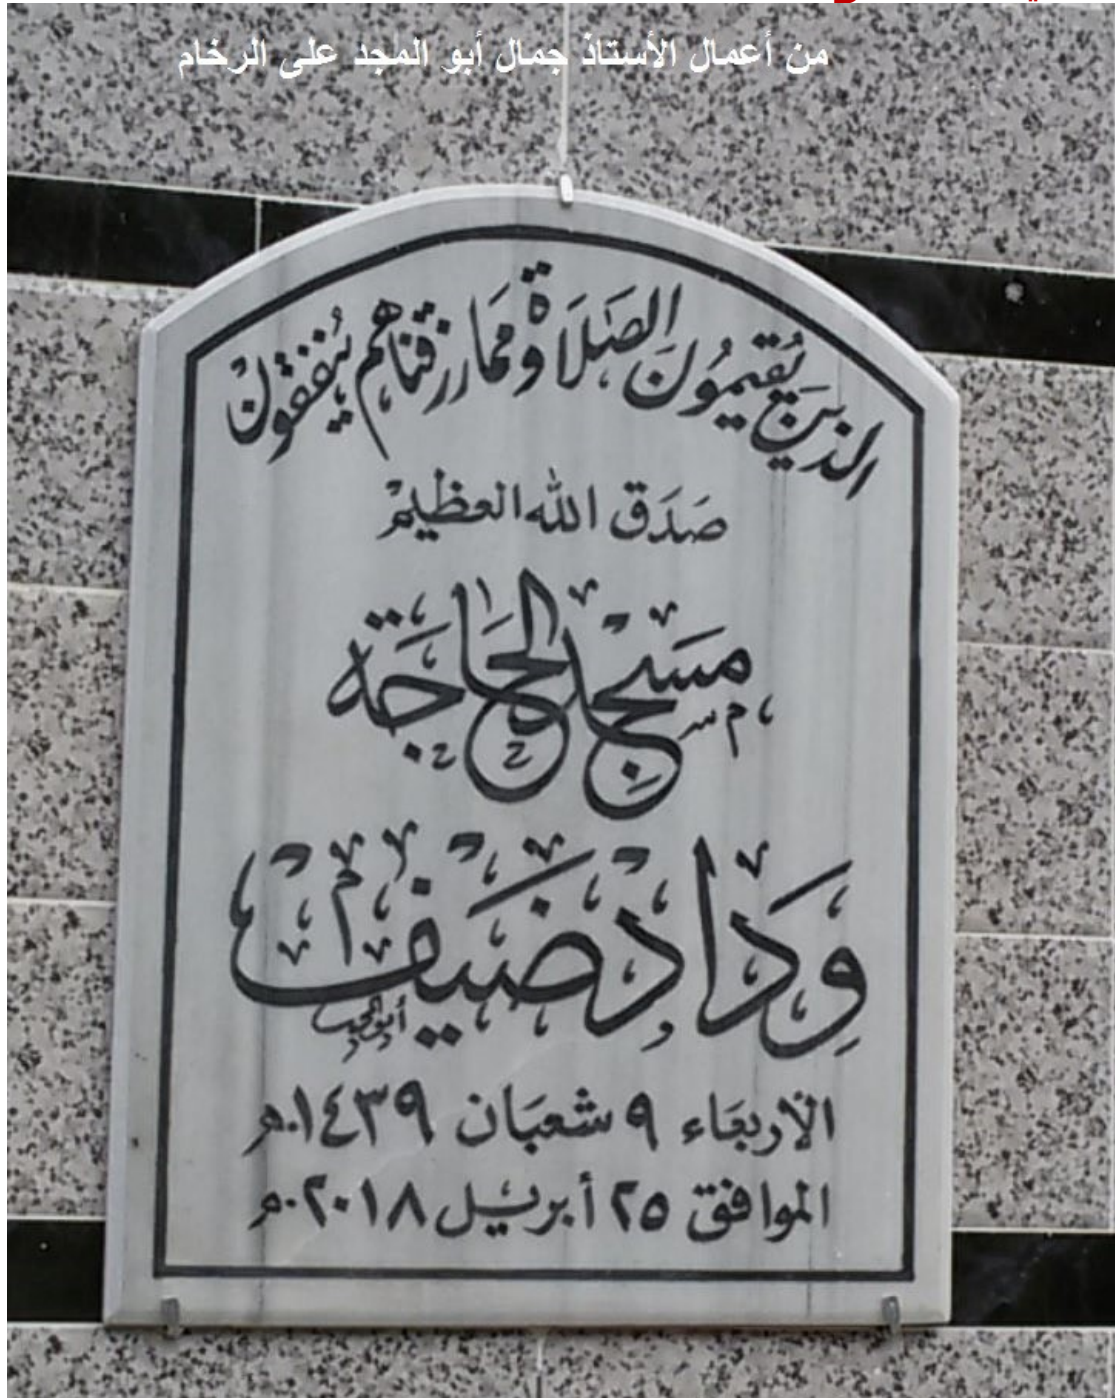 من أعمال الأستاذ جمال أبو المجد على الرخام
الذين يُقيمُونَ الصَلَاة ومَمَا رزقناهم يُنفقُونْ
صَدَق الله العظيم
مَسَجِد الحَاجَة
وِدَاد ضَيف
أبو المجد
الأربعَاء ٩ شعبَان ١٤٣٩هـ
الموافق ٢٥ أبريل ٢٠١٨م